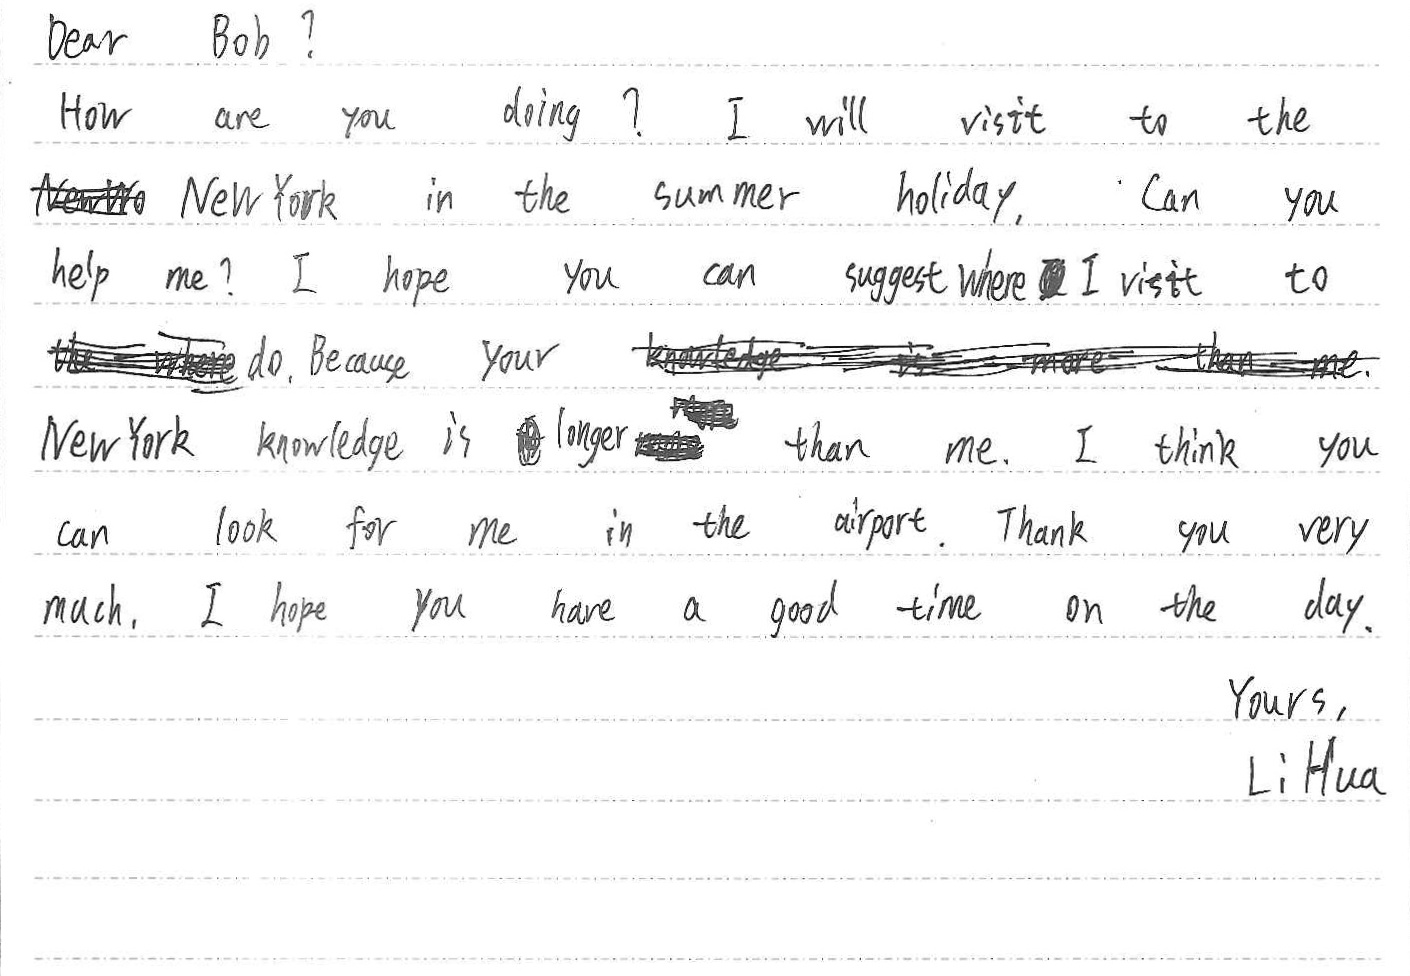 Dear Bob ?
How are you doing ? I will visit to the
New York in the summer holiday, Can you
help me? I hope you can suggest where I visit to
do. Because your
New York knowledge is longer than me. I think you
can look for me in the airport. Thank you very
much. I hope you have a good time on the day.
Yours,
Li Hua